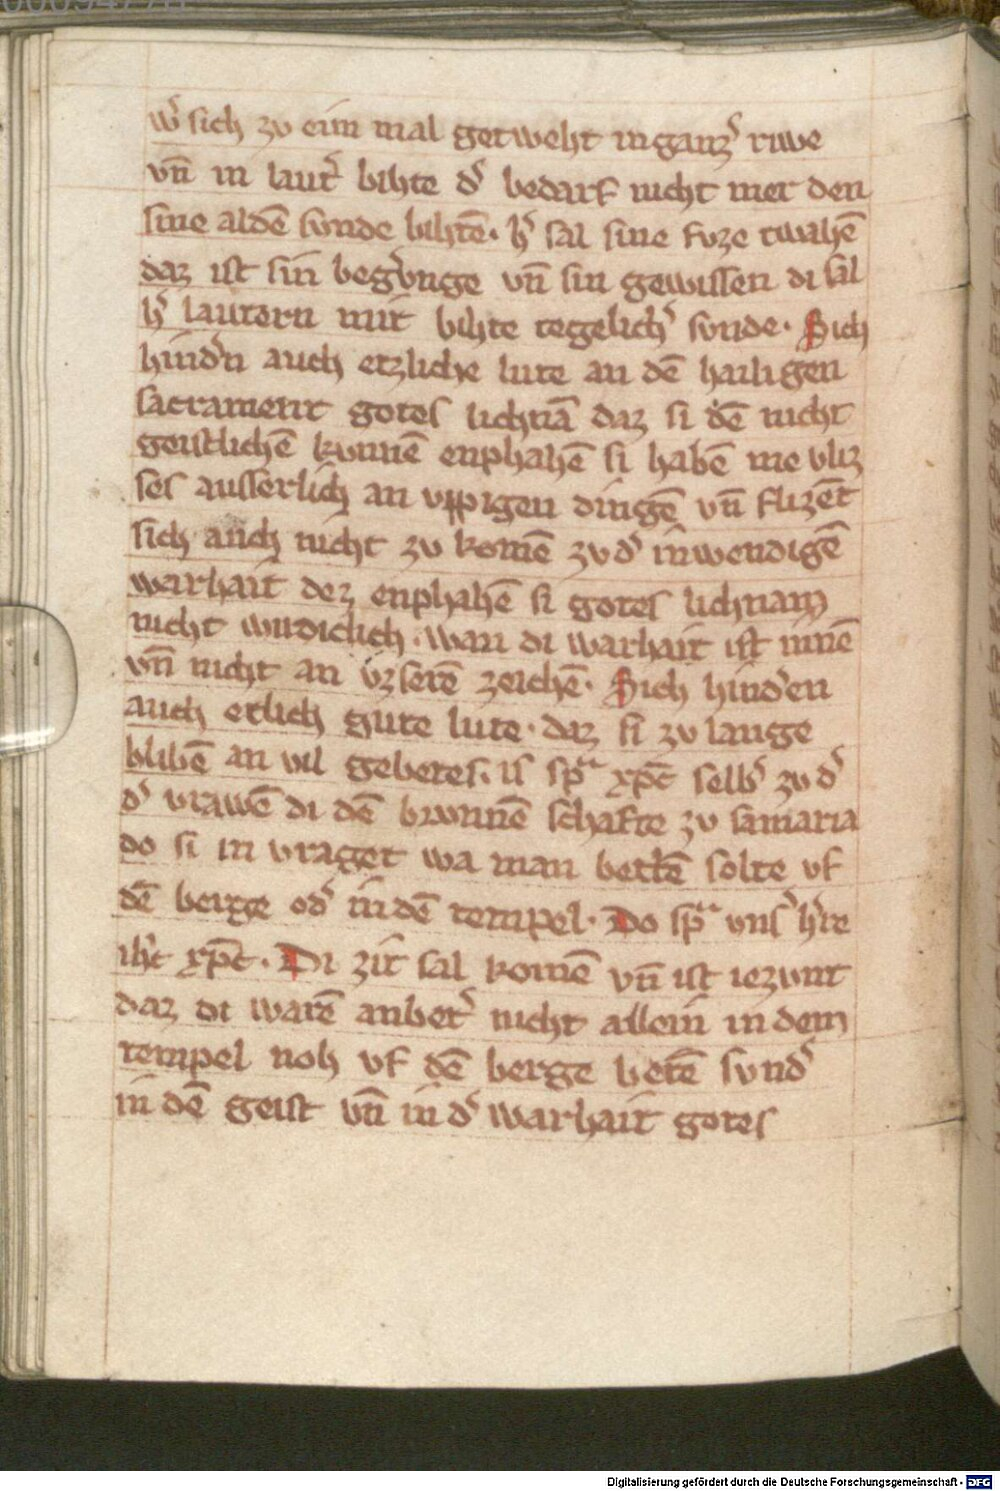 w᷎ sich zv eim mal getweht in ganz᷎ riwe
vn̄ in laut᷎ bihte d᷎ bedarf nicht mer den
sine aldē svnde bihtē· h᷎ sal sine fvze twahē
daz ist sin beg᷎vnge vn̄ sin gewissen di sal
h᷎ lautern mit bihte tegelich᷎ svnde· Sich
hind᷎n auch etzliche lute an dē hailigen
sacrament gotes lichnā daz si dē nicht
geistlichē kvnnē enphahē si habē me vliz
ses ausserlich an vppigen dingē vn̄ flizēt
sich auch nicht zv komē zv d᷎ inwendigē
warhait dez enphahē si gotes lichnam
nicht wirdiclich· wan di warhait ist innē
vn̄ nicht an vzserē zeichē· Sich hind᷎en
auch etlich gute lute· daz si zv lange
blibē an vil gebetes· is spᵃ xp̄c selb᷎ zv d᷎
d᷎ vrawē di dē brvnnē schafte zv samaria
do si in vraget wa man betē solte vf
dē berge od᷎ in dē tempel· Do spᵃ vns᷎ h᷎re
ih̄c xp̄c· Di zit sal komē vn̄ ist iezvnt
daz di warē anbet᷎ nicht allein in dem
tempel noh vf dē berge betē svnd᷎
in dē geist vn̄ in d᷎ warhait gotes
Digitalisierung gefördert durch die Deutsche Forschungsgemeinschaft - DFG